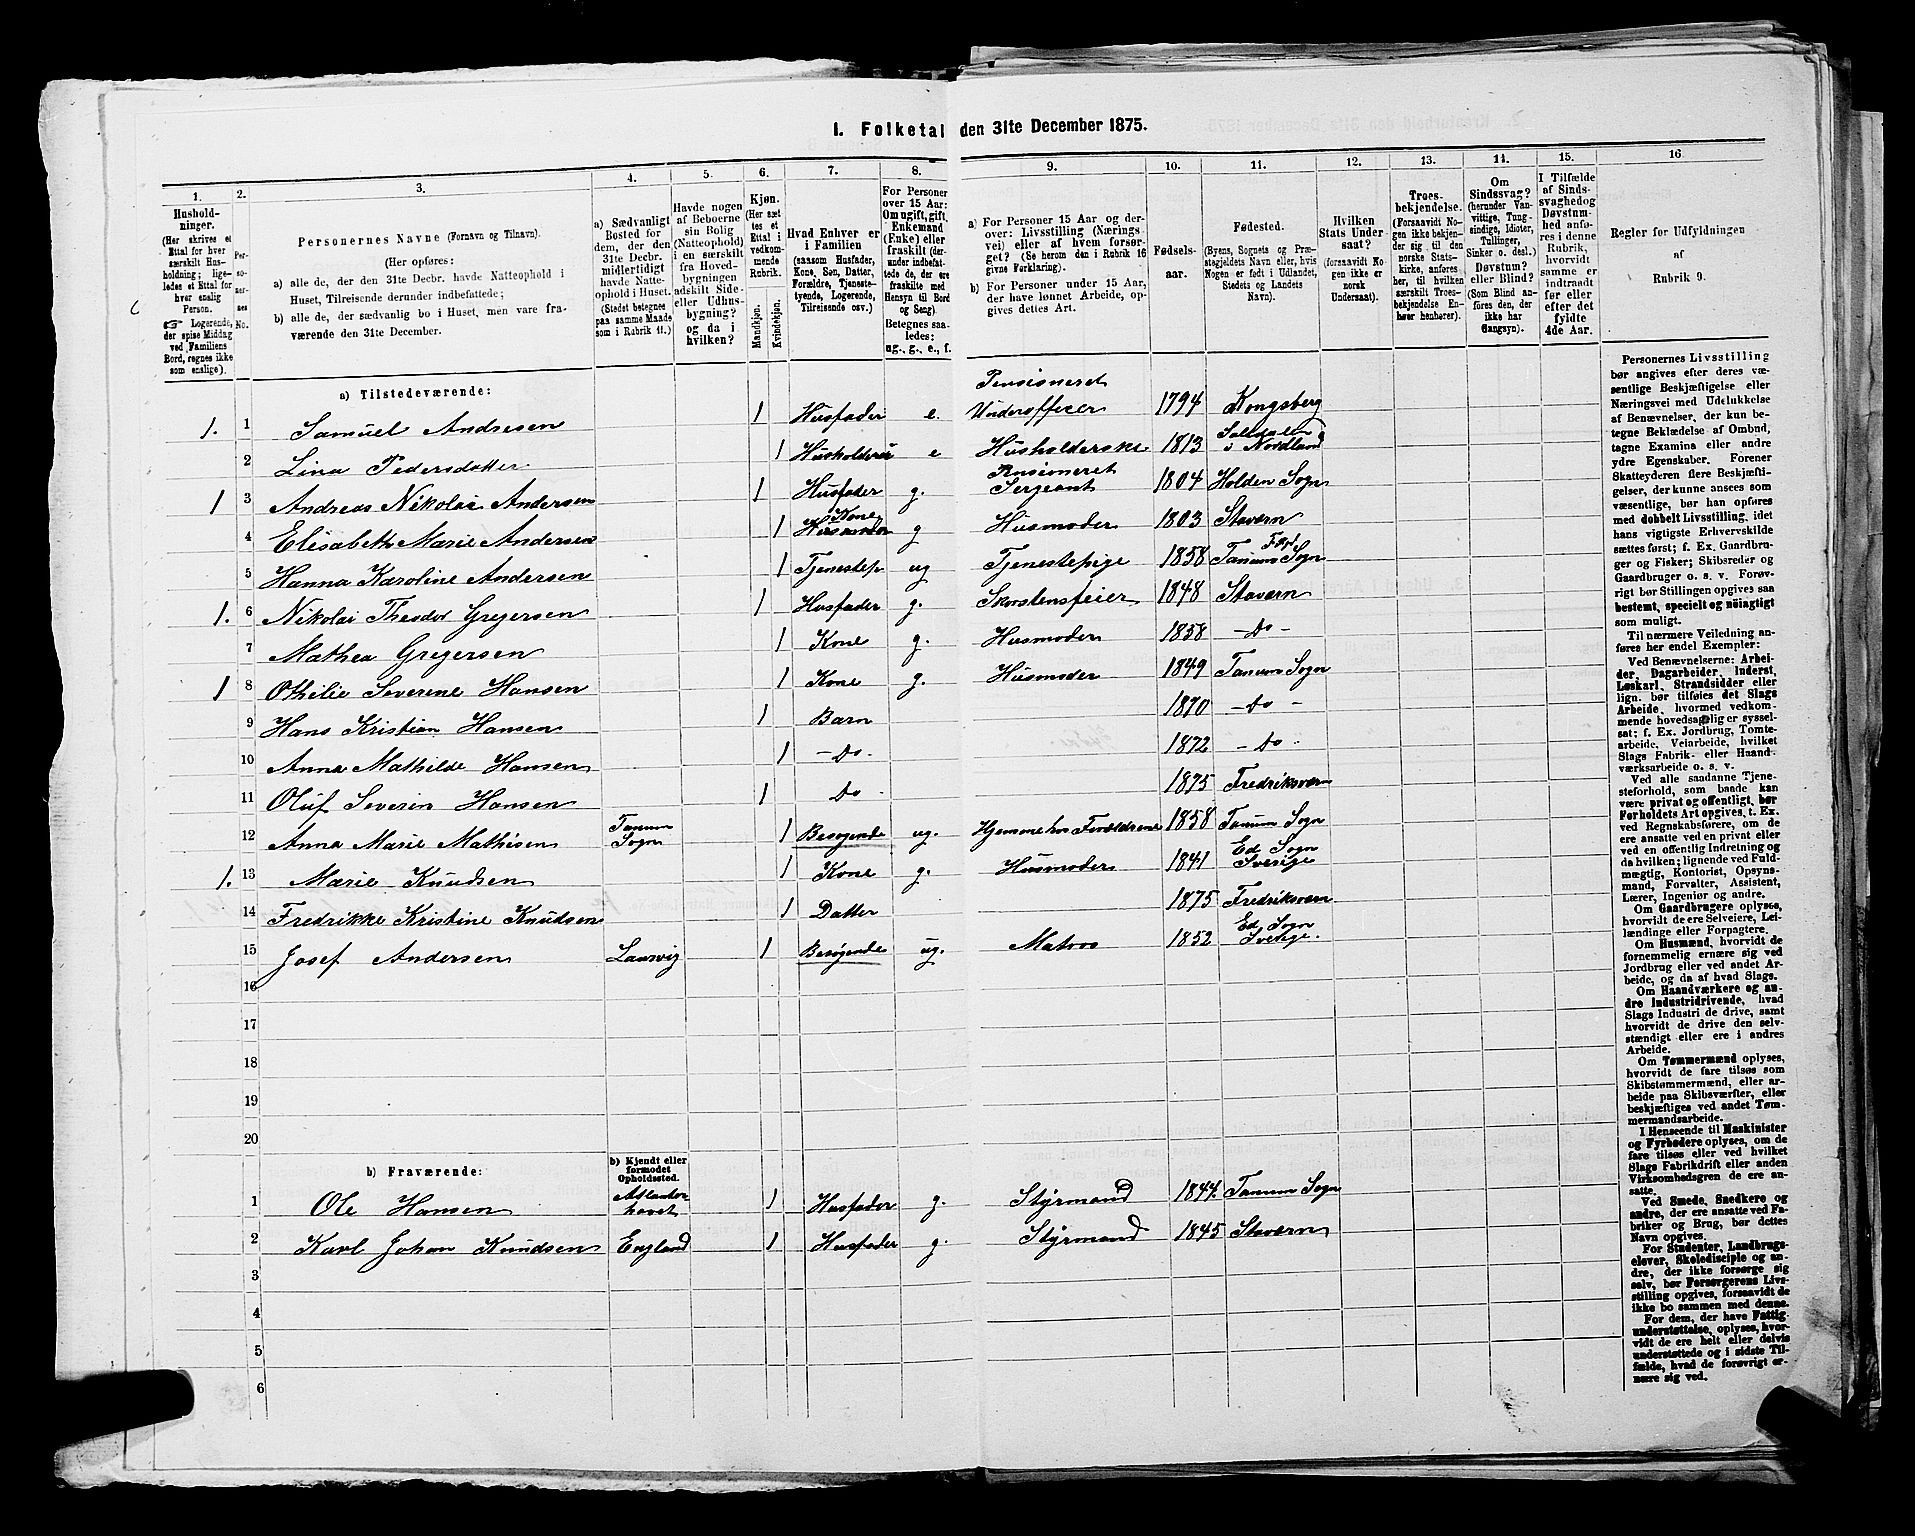 1. Folketal den 31te December 1875.
1. 2. 3. 4. 5. 6. 7. 8. 9. 10. 11. 12. 13. 14. 15. 16
Husholdninger. (Her skrives et Ettal for hver særskilt Husholdning; ligeledes et Ettal for hver enslig Person. ☞ Logerende, der spise Middag ved Familiens Bord, regnes ikke som enslige).
Personernes No.
Personernes Navne (Fornavn og Tilnavn).
(Her opføres:
a) alle de, der den 31te Decbr. havde Natteophold i Huset, Tilreisende derunder indbefattede;
b) alle de, der sædvanlig bo i Huset, men vare fraværende den 31te December.
a) Sædvanligt Bosted for dem, der den 31te Decbr. midlertidigt havde Natteophold i Huset. (Stedet betegnes paa samme Maade som i Rubrik 11.)
Havde nogen af Beboerne sin Bolig (Natteophold) i en særskilt fra Hovedbygningen adskilt Side- eller Udhusbygning? og da i hvilken?
Kjøn. (Her sæt et Ettal i vedkommende Rubrik. Mandkjøn. Kvindekjøn.
Hvad Enhver er i Familien (saasom Husfader, Kone, Søn, Datter, Forældre, Tjenestetyende, Logerende, Tilreisende osv.)
For Personer over 15 Aar: Om ugift, gift, Enkemand (Enke) eller fraskilt (derunder indbefattede de, der ere fraskilte med Hensyn til Bord og Seng). Betegnes saaledes: ug., g., e., f.
a) For Personer 15 Aar og derover: Livsstilling (Næringsvei) eller af hvem forsørget? (Se herom den i Rubrik 16 givne Forklaring).
b) For Personer under 15 Aar, der have lønnet Arbeide, opgives dettes Art.
Fødselsaar.
Fødested. (Byens, Sognets og Præstegjeldets Navn eller, hvis Nogen er født i Udlandet, Stedets og Landets Navn).
Hvilken Stats Undersaat? (forsaavidt Nogen ikke er norsk Undersaat).
Troesbekjendelse. (Forsaavidt Nogen ikke bekjender sig til den norske Statskirke, anføres her, til hvilken særskilt Troesbekjendelse Enhver henhører).
Om Sindssvag? (herunder Vanvittige, Tungsindige, Idioter, Tullinger, Sinker o. desl.) Døvstum? eller Blind? (Som Blind anføres den, der ikke har Gangsyn).
I Tilfælde af Sindssvaghed og Døvstumhed anføres i denne Rubrik, hvorvidt samme er indtraadt før eller efter det fyldte 4de Aar.
Regler for Udfyldningen af Rubrik 9.
a) Tilstedeværende:
1. 1 Samuel Andresen 1 Husfader e. Pensioneret Underofficer 1794 Kongsberg
2 Lina Pedersdatter 1 Husholderske e Husholderske 1813 Saltdalen i Nordland
1 3 Andreas Nikolai Andersen 1 Husfader g. Pensioneret Sergeant 1804 Holden Sogn
4 Elisabeth Marie Andersen 1 Kone g Husmoder 1803 Stavern
5 Hanna Karoline Andersen 1 Tjenestep ug Tjenestepige 1858 Tanum Sogn
1. 6 Nikolai Theodor Gregersen 1 Husfader g. Skorstensfeier 1848 Stavern
7 Mathea Gregersen 1 Kone g. Husmoder 1858 - Do -
1 8 Othilie Severine Hansen 1 Kone g. Husmoder 1849 Tanum Sogn
9 Hans Kristian Hansen 1 Barn 1870 - Do -
10 Anna Mathilde Hansen 1 - Do - 1872 - Do -
11 Oluf Severin Hansen 1 Do - 1875 Fredriksværn
12 Anna Marie Mathisen Tanum Sogn 1 Besøgende ug. Hjemme hos Forældrene 1858 Tanum Sogn
1. 13 Marie Knudsen 1 Kone g. Husmoder 1841 Ed Sogn Sverige
14 Fredrikke Kristine Knudsen 1 Datter 1875 Fredriksværn
15 Josef Andersen Laurvig 1 Besøgende ug. Matros 1852 Ed Sogn Sverige.
16
17
18
19
20
b) Fraværende: b) Kjendt eller formodet Opholdssted.
1 Ole Hansen Atlanterhavet 1 Husfader g. Styrmand 1844. Tanum Sogn
2 Karl Johan Knudsen England 1 Husfader g. Styrmand 1845 Stavern
3
4
5
6
Personernes Livsstilling bør angives efter deres væsentlige Beskjæftigelse eller Næringsvei med Udelukkelse af Benævnelser, der kun betegne Beklædelse af Ombud, tagne Examina eller andre ydre Egenskaber. Forener Skatteyderen flere Beskjæftigelser, der kunne ansees som væsentlige, bør han opføres med dobbelt Livsstilling, idet hans vigtigste Erhvervskilde sættes først; f. Ex. Gaardbruger og Fisker; Skibsreder og Gaardbruger o. s. v. Forøvrigt bør Stillingen opgives saa bestemt, specielt og nøiagtigt som muligt.
Til nærmere Veiledning anføres her endel Exempler:
Ved Benævnelserne: Arbeider, Dagarbeider, Inderst, Løskarl, Strandsidder eller lign. bør tilføies det Slags Arbeide, hvormed vedkommende hovedsagelig er sysselsat; f. Ex. Jordbrug, Tomtearbeide, Veiarbeide, hvilket Slags Fabrik- eller Haandværksarbeide o. s. v.
Ved alle saadanne Tjenesteforhold, som baade kan være privat og offentligt, bør Forholdets Art opgives, t. Ex. ved Regnskabsførere, om de ere ansatte ved en privat eller ved en offentlig Indretning og da hvilken; lignende ved Fuldmægtig, Kontorist, Opsynsmand, Forvalter, Assistent, Lærer, Ingeniør og andre.
Om Gaardbrugere oplyses, hvorvidt de ere Selveiere, Leilændinge eller Forpagtere.
Om Husmænd, hvorvidt de fornemmelig ernære sig ved Jordbrug eller ved andet Arbeide, og da af hvad Slags.
Om Haandværkere og andre Industridrivende, hvad Slags Industri de drive, samt hvorvidt de drive den selvstændigt eller ere i andres Arbeide.
Om Tømmermænd oplyses, hvorvidt de fare tilsøs som Skibstømmermænd, eller arbeide paa Skibsværfter, eller beskjæftiges ved andet Tømmermandsarbeide.
I Henseende til Maskinister og Fyrbødere oplyses, om de fare tilsøs eller ved hvilket Slags Fabrikdrift eller anden Virksomhedsgren de ere ansatte.
Ved Smede, Snedkere og andre, der ere ansatte ved Fabriker og Brug, bør dettes Navn opgives.
For Studenter, Landbrugselever, Skoledisciple og andre, der ikke forsørge sig selv, bør Forsørgerens Livsstilling opgives, forsaavidt de ikke bo sammen med denne.
For dem, der have Fattigunderstøttelse, oplyses, hvorvidt de ere helt eller delvis understøttede og i sidste Tilfælde, hvad de forøvrigt ernære sig ved.